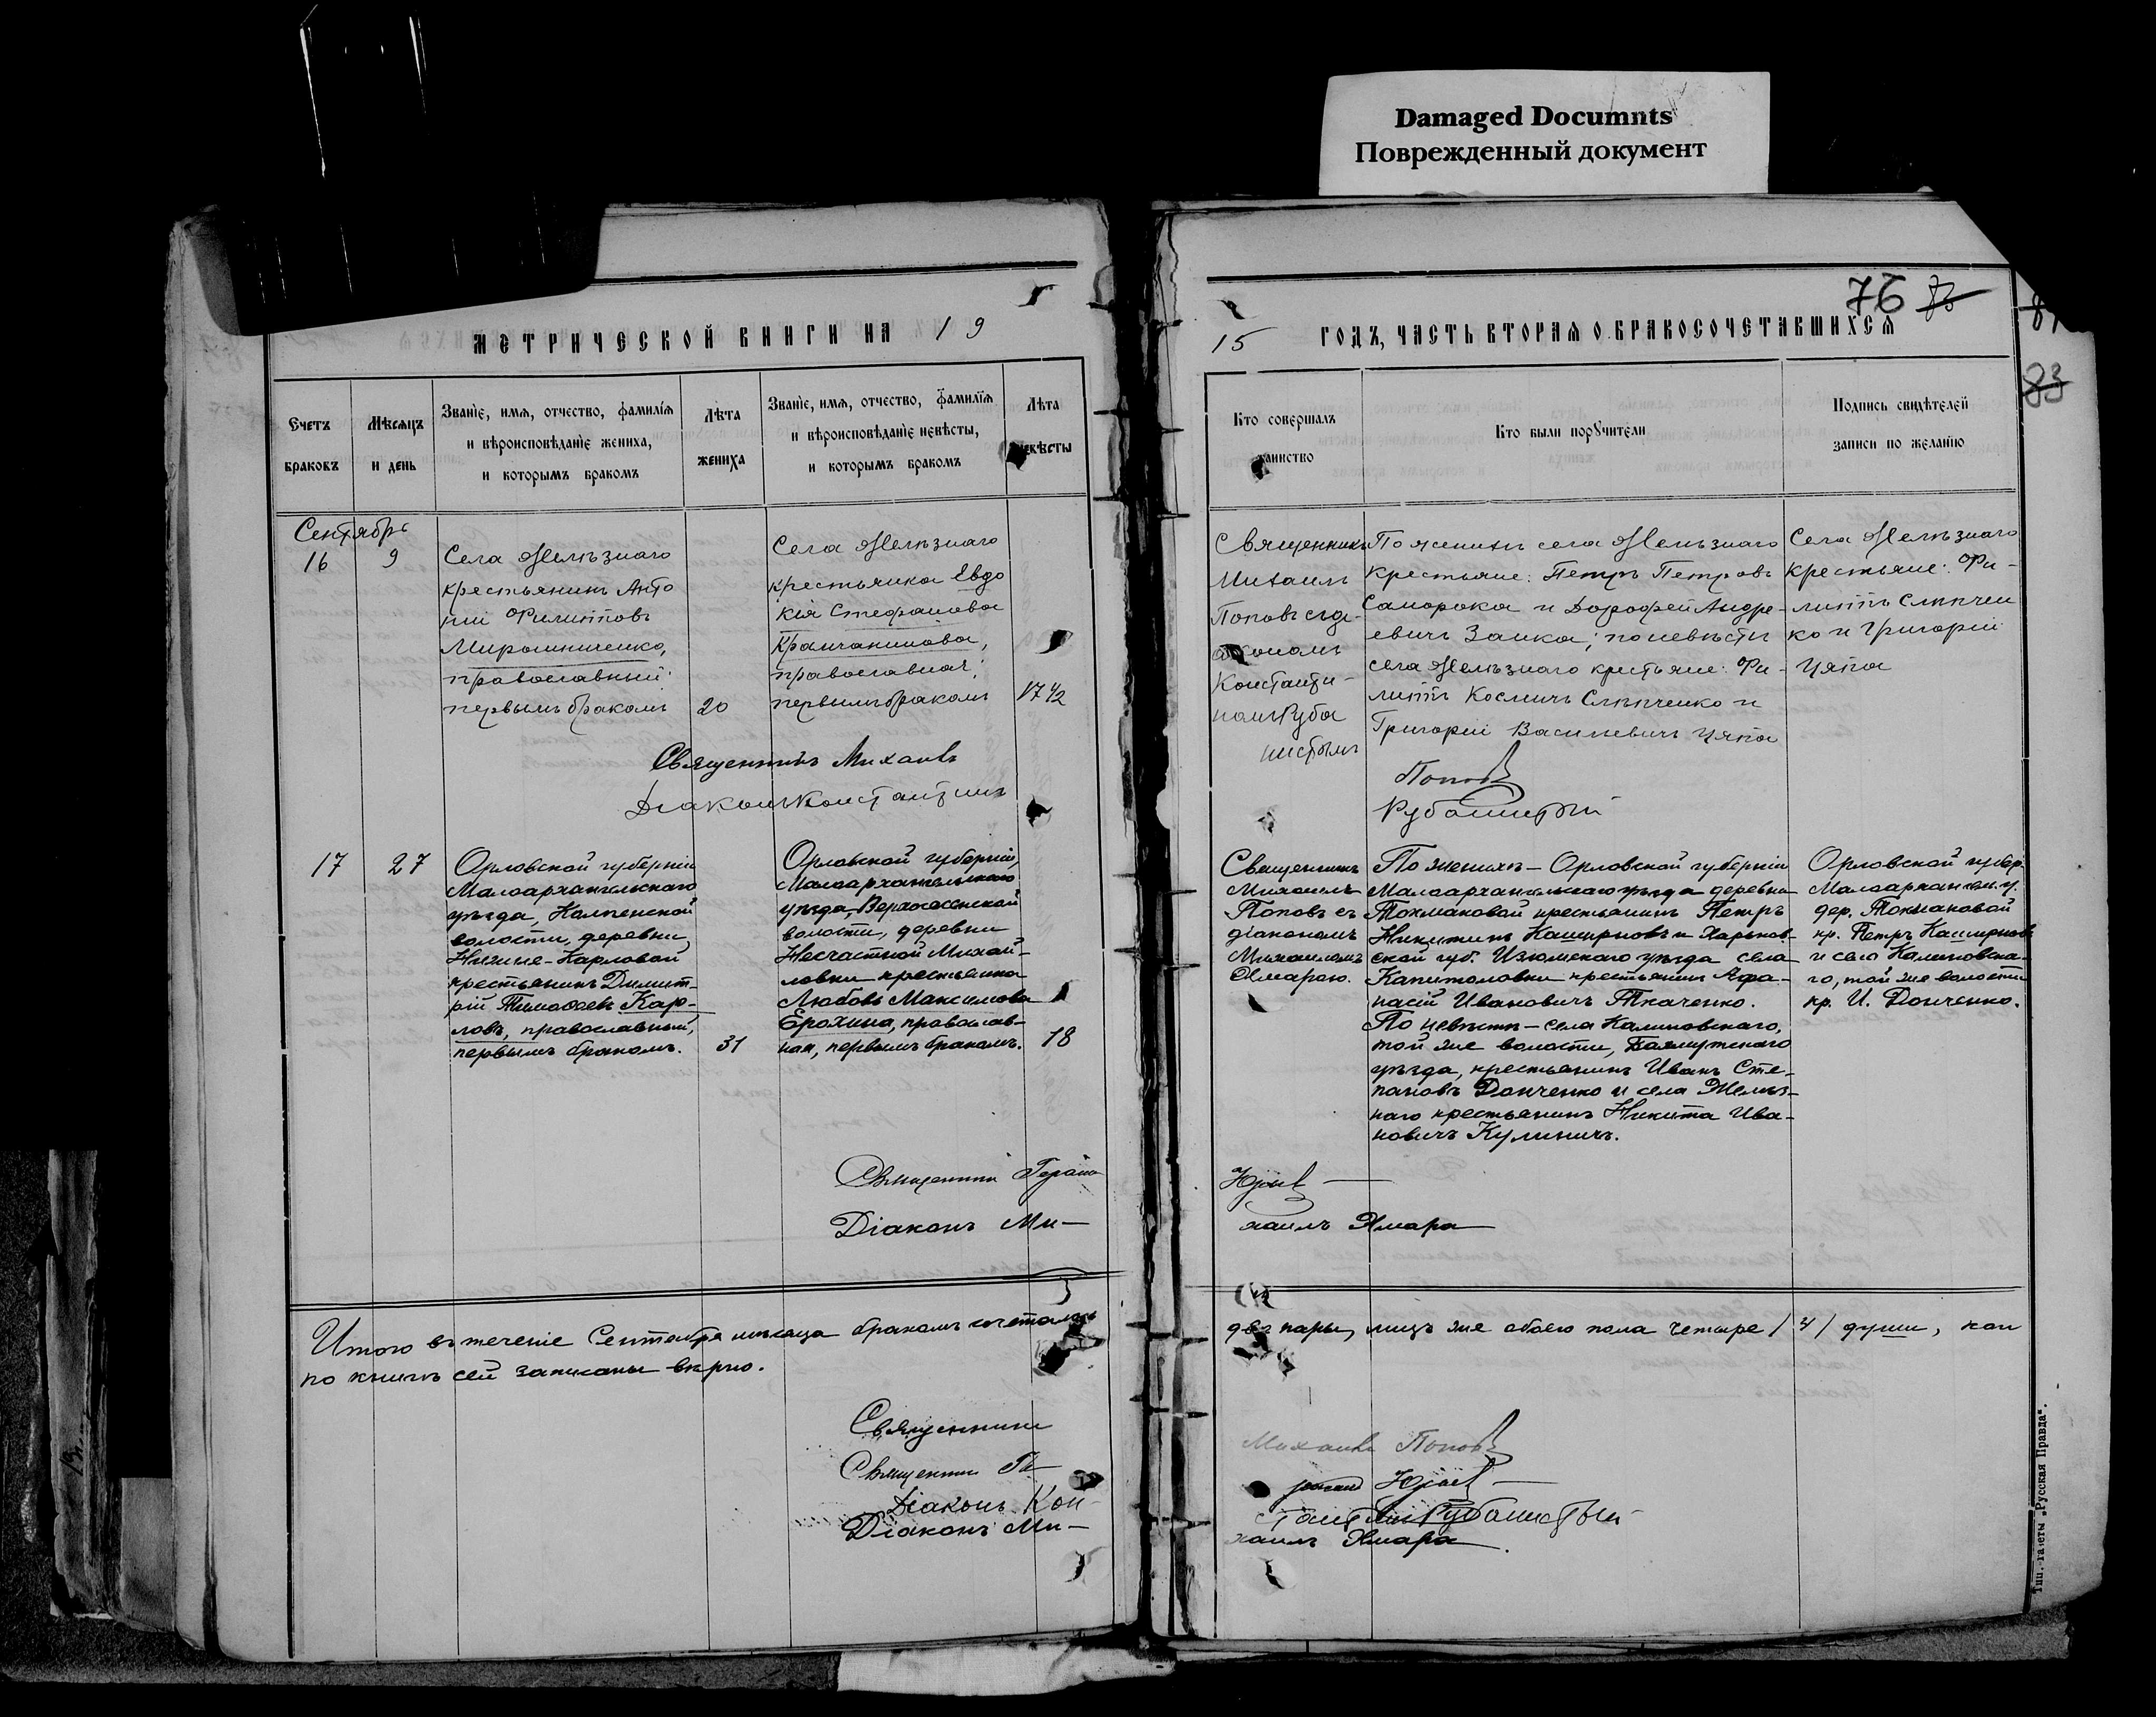 Damaged Documnts
Поврежденный документ
76 83
83
МЕТРИЧЕСКОЙ КНИГИ НА 19
15 ГОДЪ, ЧАСТЬ ВТОРАЯ О БРАКОСОЧЕТАВШИХСЯ
Счетъ
браковъ
Мѣсяцъ
и день
Званіе, имя, отчество, фамилія
и вѣроисповѣданіе жениха,
и которымъ бракомъ
Лѣта
жениха
Званіе, имя, отчество, фамилія
и вѣроисповѣданіе невѣсты,
и которымъ бракомъ
Лѣта
невѣсты
Кто совершалъ
таинство
Кто были поручители
Подпись свидѣтелей
записи по желанію
Сентябрь
16
9
Села Желѣзнаго
крестьянинъ Анто
ній Филипповъ
Мирошниченко,
православный
первымъ бракомъ
20
Села Желѣзнаго
крестьянка Евдо
кія Стефанова
православная;
первымъ бракомъ
17 1/2
Священникъ
Михаилъ
Поповъ съ ді-
акономъ
Константи-
номъ Руба
нистымъ
По женихѣ села Желѣзнаго
крестьяне: Петръ Петровъ
Саморока и Дорофей Андре-
евичъ Заика; по невѣстѣ
села Желѣзнаго крестьяне: Фи-
липпъ Космичъ Слѣпченко и
Григорій Васильевичъ Цяпа
Села Желѣзнаго
крестьяне: Фи-
липпъ Слѣпчен
ко и Григорій
Цяпа
Священникъ Михаилъ
Поповъ
Діаконъ Константинъ
17
27
Орловской губерніи
Малоархангельскаго
уѣзда, Колпенской
волости, деревни
Нижне-Карловой
крестьянинъ Димит-
рій Тимофеевъ Кар-
ловъ, православный,
первымъ бракомъ.
31
Орловской губерніи,
Малоархангельскаго
уѣзда, Верхососенской
волости, деревни
Несчастной Михай-
ловки крестьянка
Любовь Максимова
Ерохина, православ-
ная, первымъ бракомъ.
18
Священникъ
Михаилъ
Поповъ съ
діакономъ
Михаиломъ
Хмарою.
По женихѣ – Орловской губерніи
Малоархангельскаго уѣзда деревни
Токмаковой крестьянинъ Петръ
Никитинъ Каширновъ и Харьков-
ской губ. Изюмскаго уѣзда села
Капитоловки крестьянинъ Афа-
насій Ивановичъ Ткаченко.
По невѣстѣ – села Калиновскаго,
той же волости, Бахмутскаго
уѣзда, крестьянинъ Иванъ Сте-
пановъ Донченко и села Желѣз-
наго крестьянинъ Никита Ива-
новичъ Кулиничъ.
Орловской губер.
Малоархангел. у.
дер. Токмаковой
кр. Петръ Каширновъ
и села Калиновска-
го, той же волости
кр. И. Донченко.
Священникъ
Діаконъ Ми-
хаилъ Хмара
Итого въ теченіе Сентября мѣсяца бракомъ сочетались
двѣ пары, лицъ же обоего пола четыре /4/ души, кои
по книгѣ сей записаны вѣрно.
Священники
Михаилъ Поповъ
Священникъ
Діаконъ Кон-
Діаконъ Ми-
хаилъ Хмара
Тип. газеты „Русская Правда".